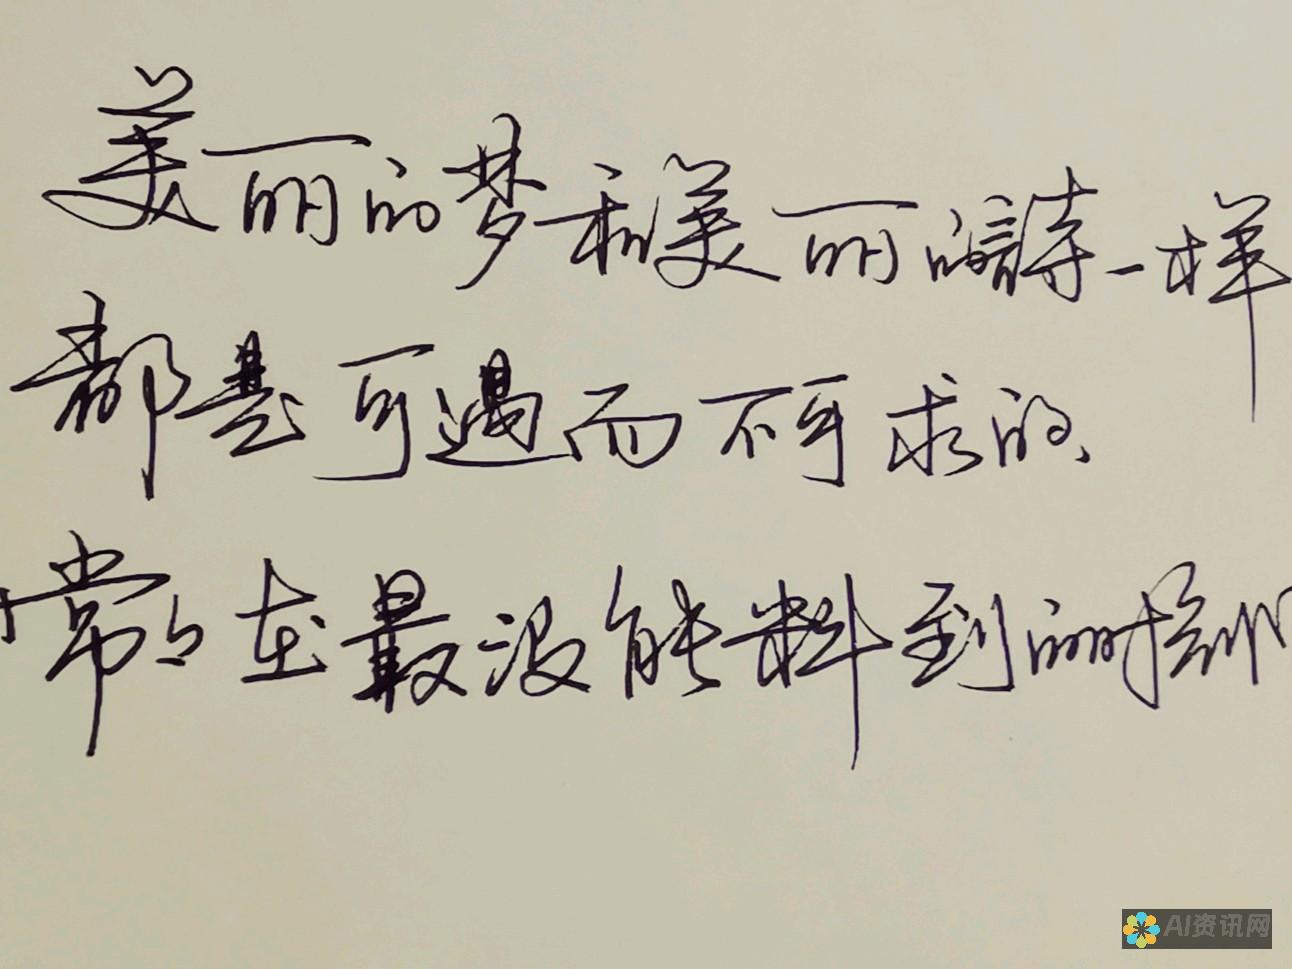 美丽的梦和美丽的詩一样
都是可遇而不可求的、
常々在最没能料到的时
AI资讯网